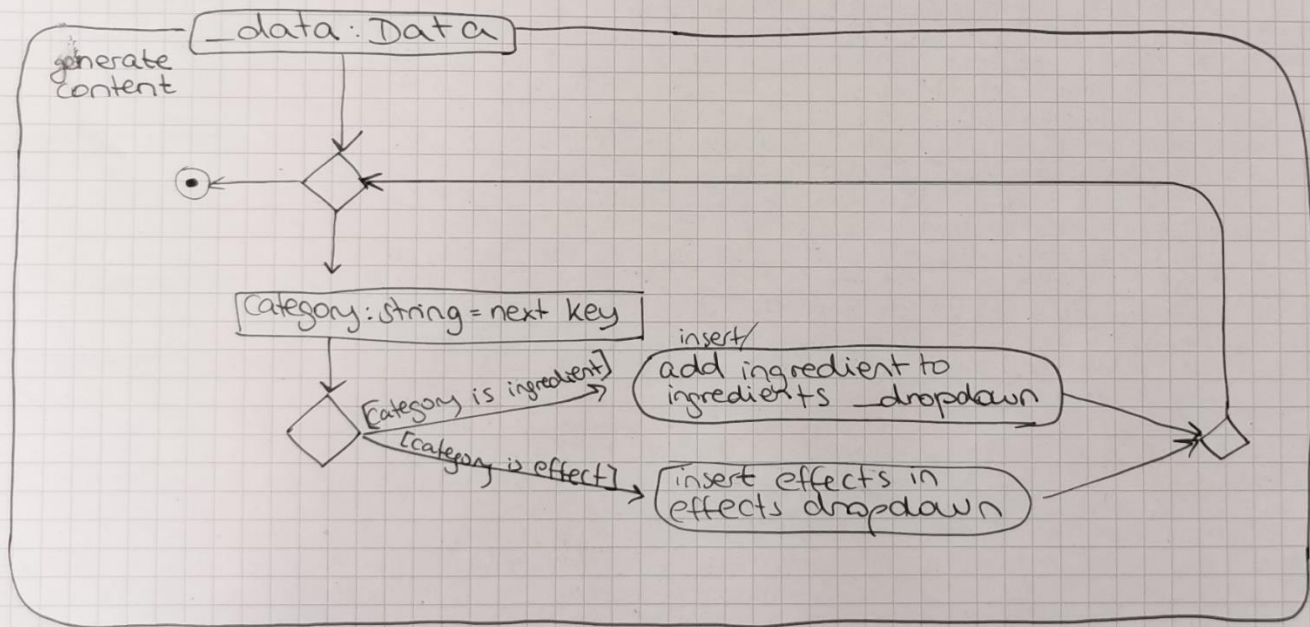 _data: Data
generate
content
category: string = next key
[category is ingredient]
insert/
add ingredient to
ingredients _dropdown
[category is effect]
insert effects in
effects dropdown